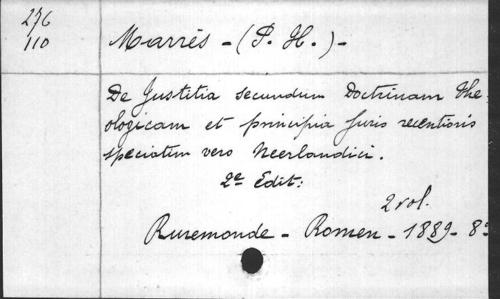 276
110
Marrès - (P. H.) -
De Justitia secundum Doctrinam The-
ologicam et principia Juris recentioris
speciatim vero Neerlandici.
2e Edit:
2 vol.
Ruremonde - Romen - 1889 - 8°